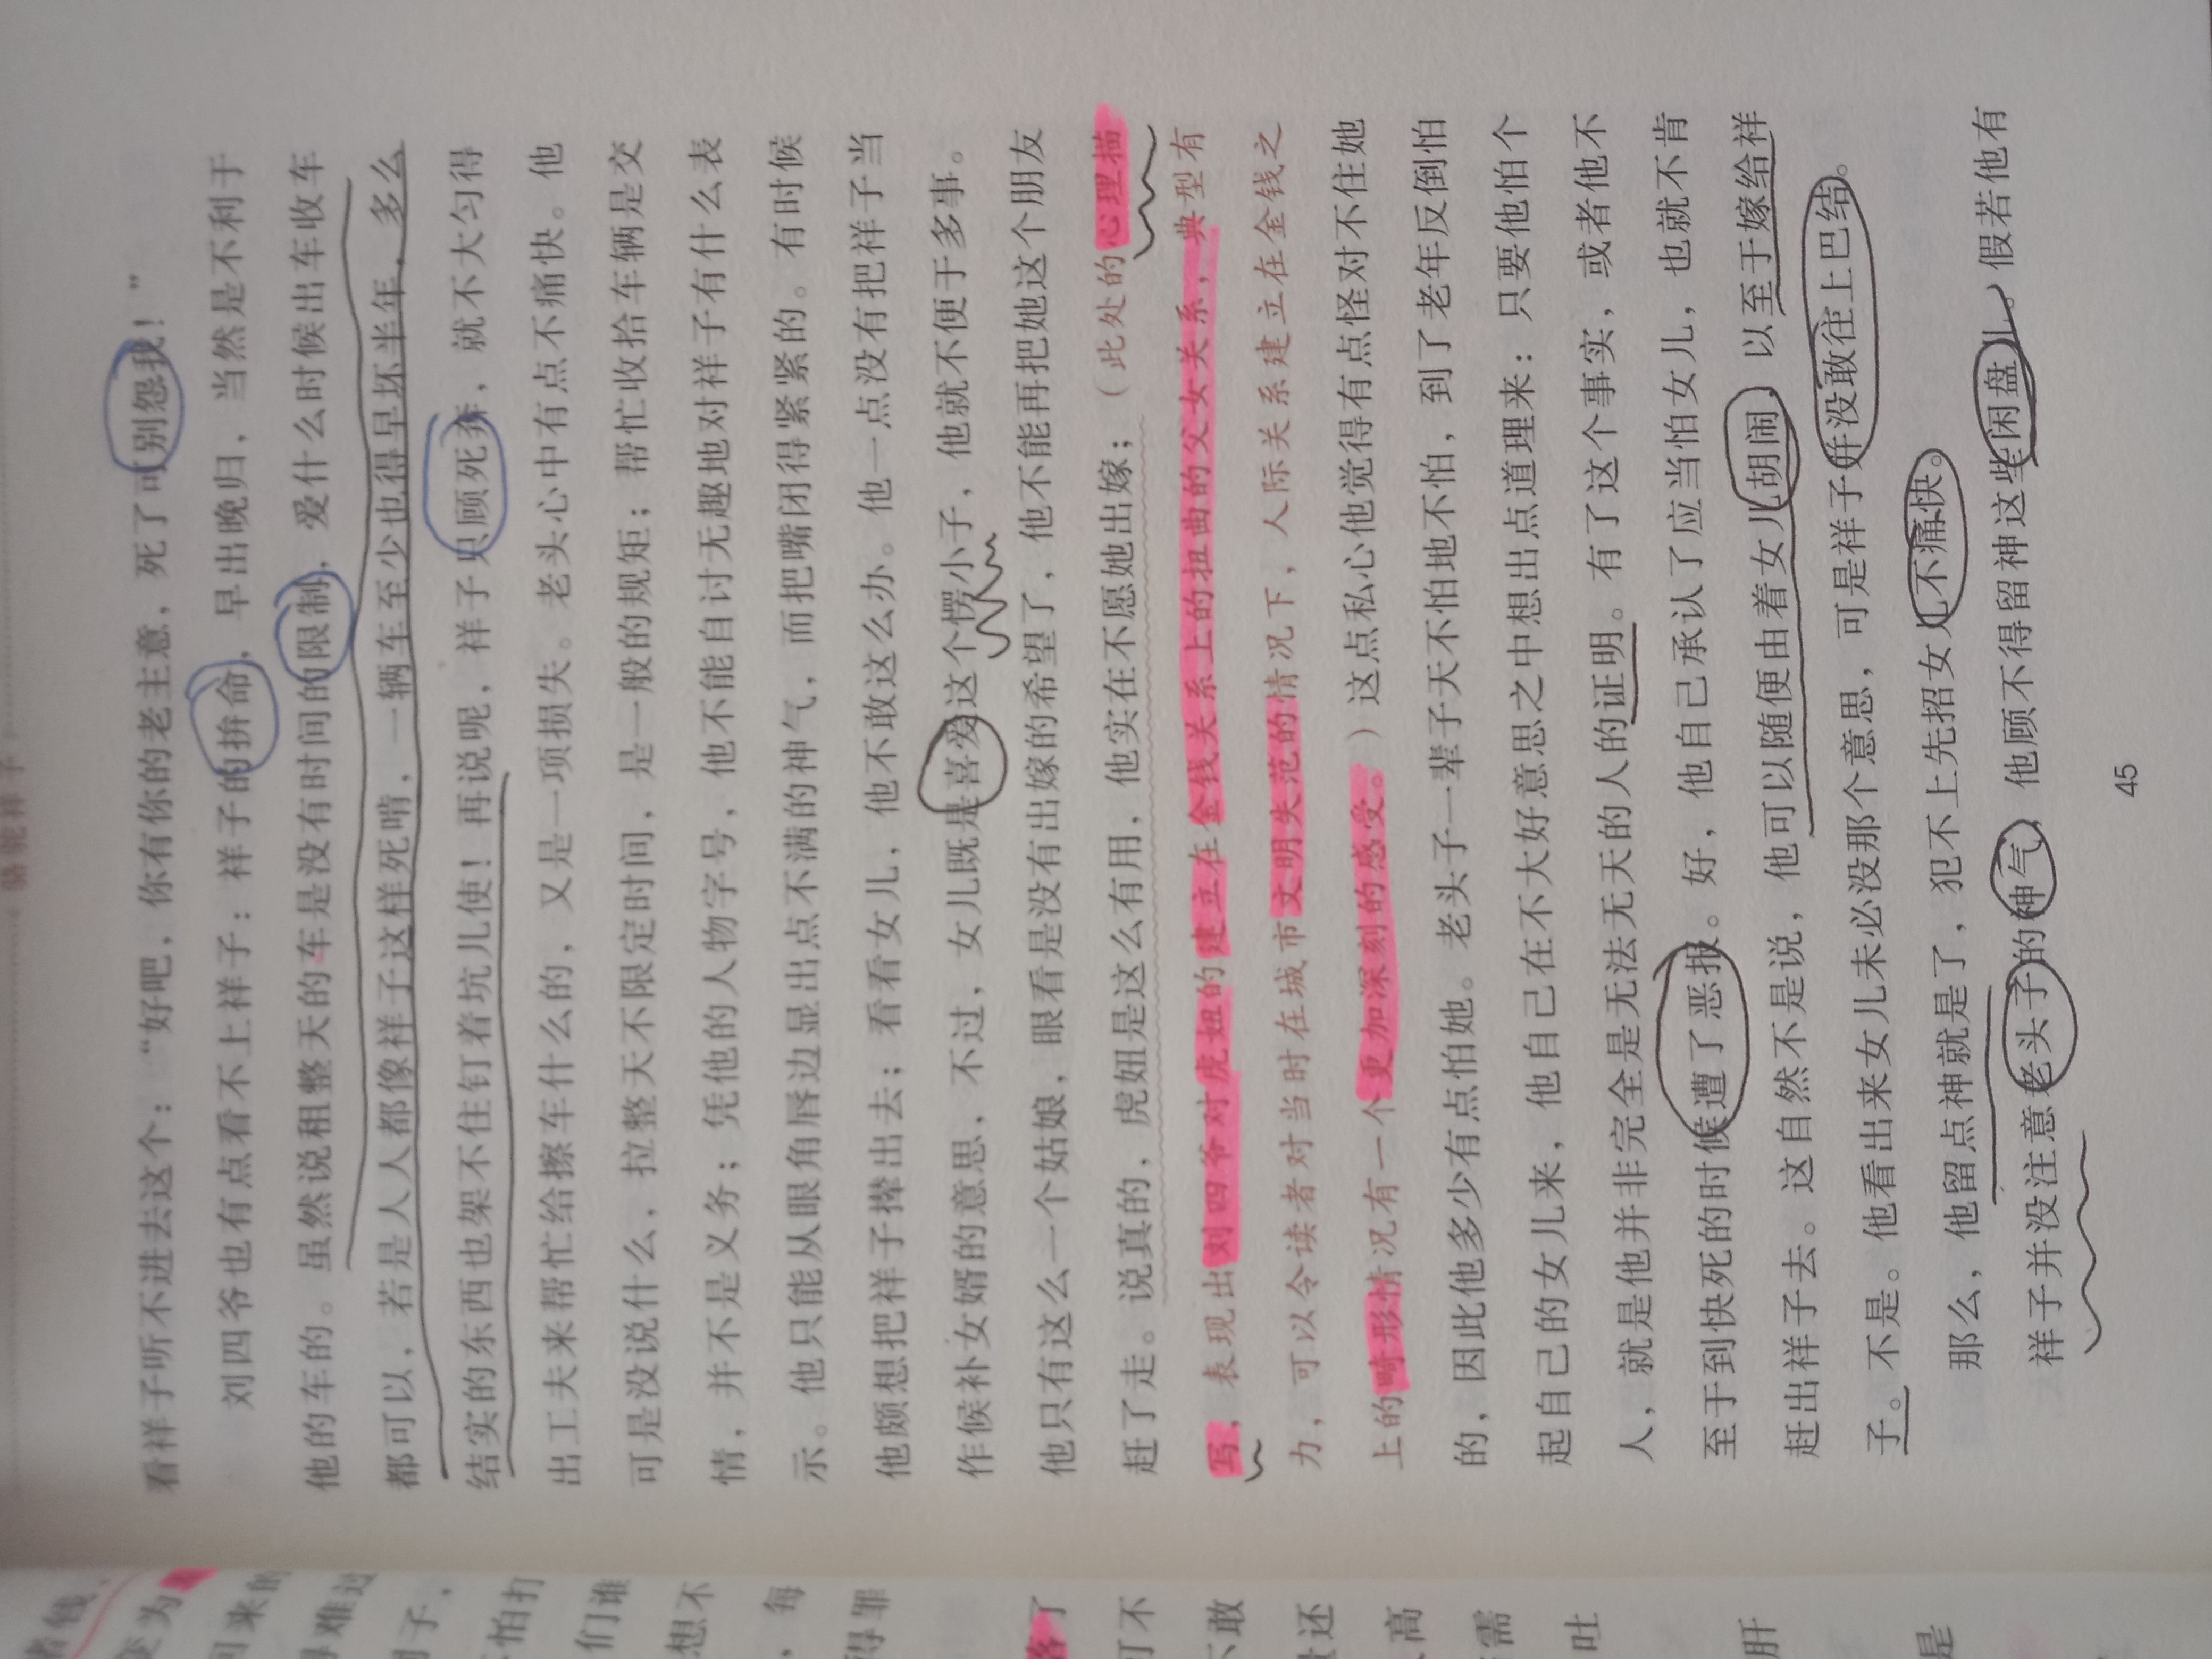 骆驼祥子
看祥子听不进去这个：“好吧，你有你的老主意，死了可别怨我！”
刘四爷也有点看不上祥子：祥子的拚命，早出晚归，当然是不利于
他的车的。虽然说租整天的车是没有时间的限制，爱什么时候出车收车
都可以，若是人人都像祥子这样死啃，一辆车至少也得早坏半年，多么
结实的东西也架不住钉着坑儿使！再说呢，祥子只顾死奔，就不大匀得
出工夫来帮忙给擦车什么的，又是一项损失。老头心中有点不痛快。他
可是没说什么，拉整天不限定时间，是一般的规矩；帮忙收拾车辆是交
情，并不是义务；凭他的人物字号，他不能自讨无趣地对祥子有什么表
示。他只能从眼角唇边显出点不满的神气，而把嘴闭得紧紧的。有时候
他颇想把祥子撵出去；看看女儿，他不敢这么办。他一点没有把祥子当
作候补女婿的意思，不过，女儿既是喜爱这个愣小子，他就不便于多事。
他只有这么一个姑娘，眼看是没有出嫁的希望了，他不能再把她这个朋友
赶了走。说真的，虎妞是这么有用，他实在不愿她出嫁；（此处的心理描
写，表现出刘四爷对虎妞的建立在金钱关系上的扭曲的父女关系，典型有
力，可以令读者对当时在城市文明失范的情况下，人际关系建立在金钱之
上的畸形情况有一个更加深刻的感受。）这点私心他觉得有点怪对不住她
的，因此他多少有点怕她。老头子一辈子天不怕地不怕，到了老年反倒怕
起自己的女儿来，他自己在不大好意思之中想出点道理来：只要他怕个
人，就是他并非完全是无法无天的人的证明。有了这个事实，或者他不
至于到快死的时候遭了恶报。好，他自己承认了应当怕女儿，也就不肯
赶出祥子去。这自然不是说，他可以随便由着女儿胡闹，以至于嫁给祥
子。不是。他看出来女儿未必没那个意思，可是祥子并没敢往上巴结。
那么，他留点神就是了，犯不上先招女儿不痛快。
祥子并没注意老头子的神气，他顾不得留神这些闲盘儿。假若他有
45